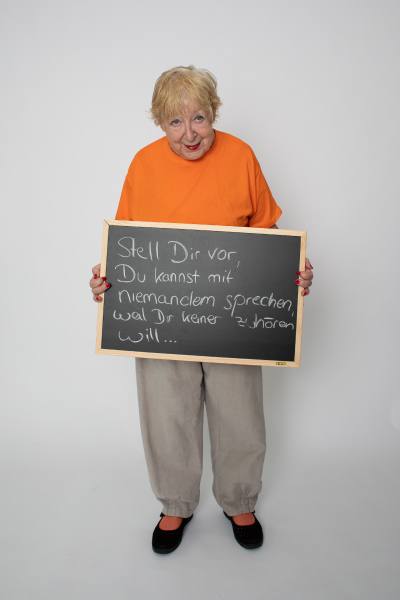 Stell Dir vor,
Du kannst mit
niemandem sprechen,
weil Dir keiner zuhören
will...